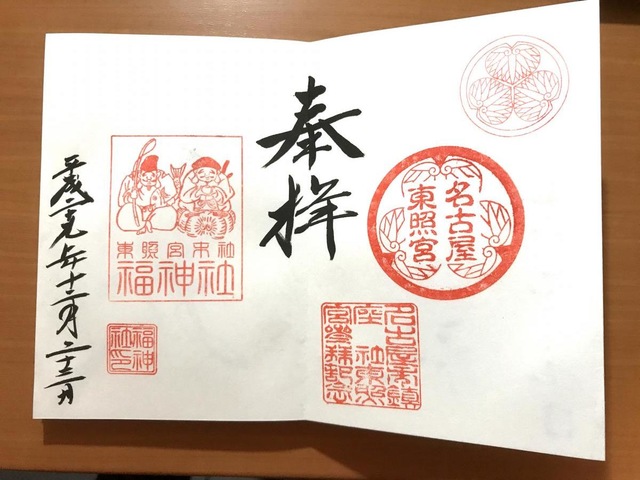 名古屋
東照宮
名古屋市鎮
座 社東照
宮参拝記念
奉拝
東照宮末社
福神社
福神
社印
平成二九年十二月二十三日